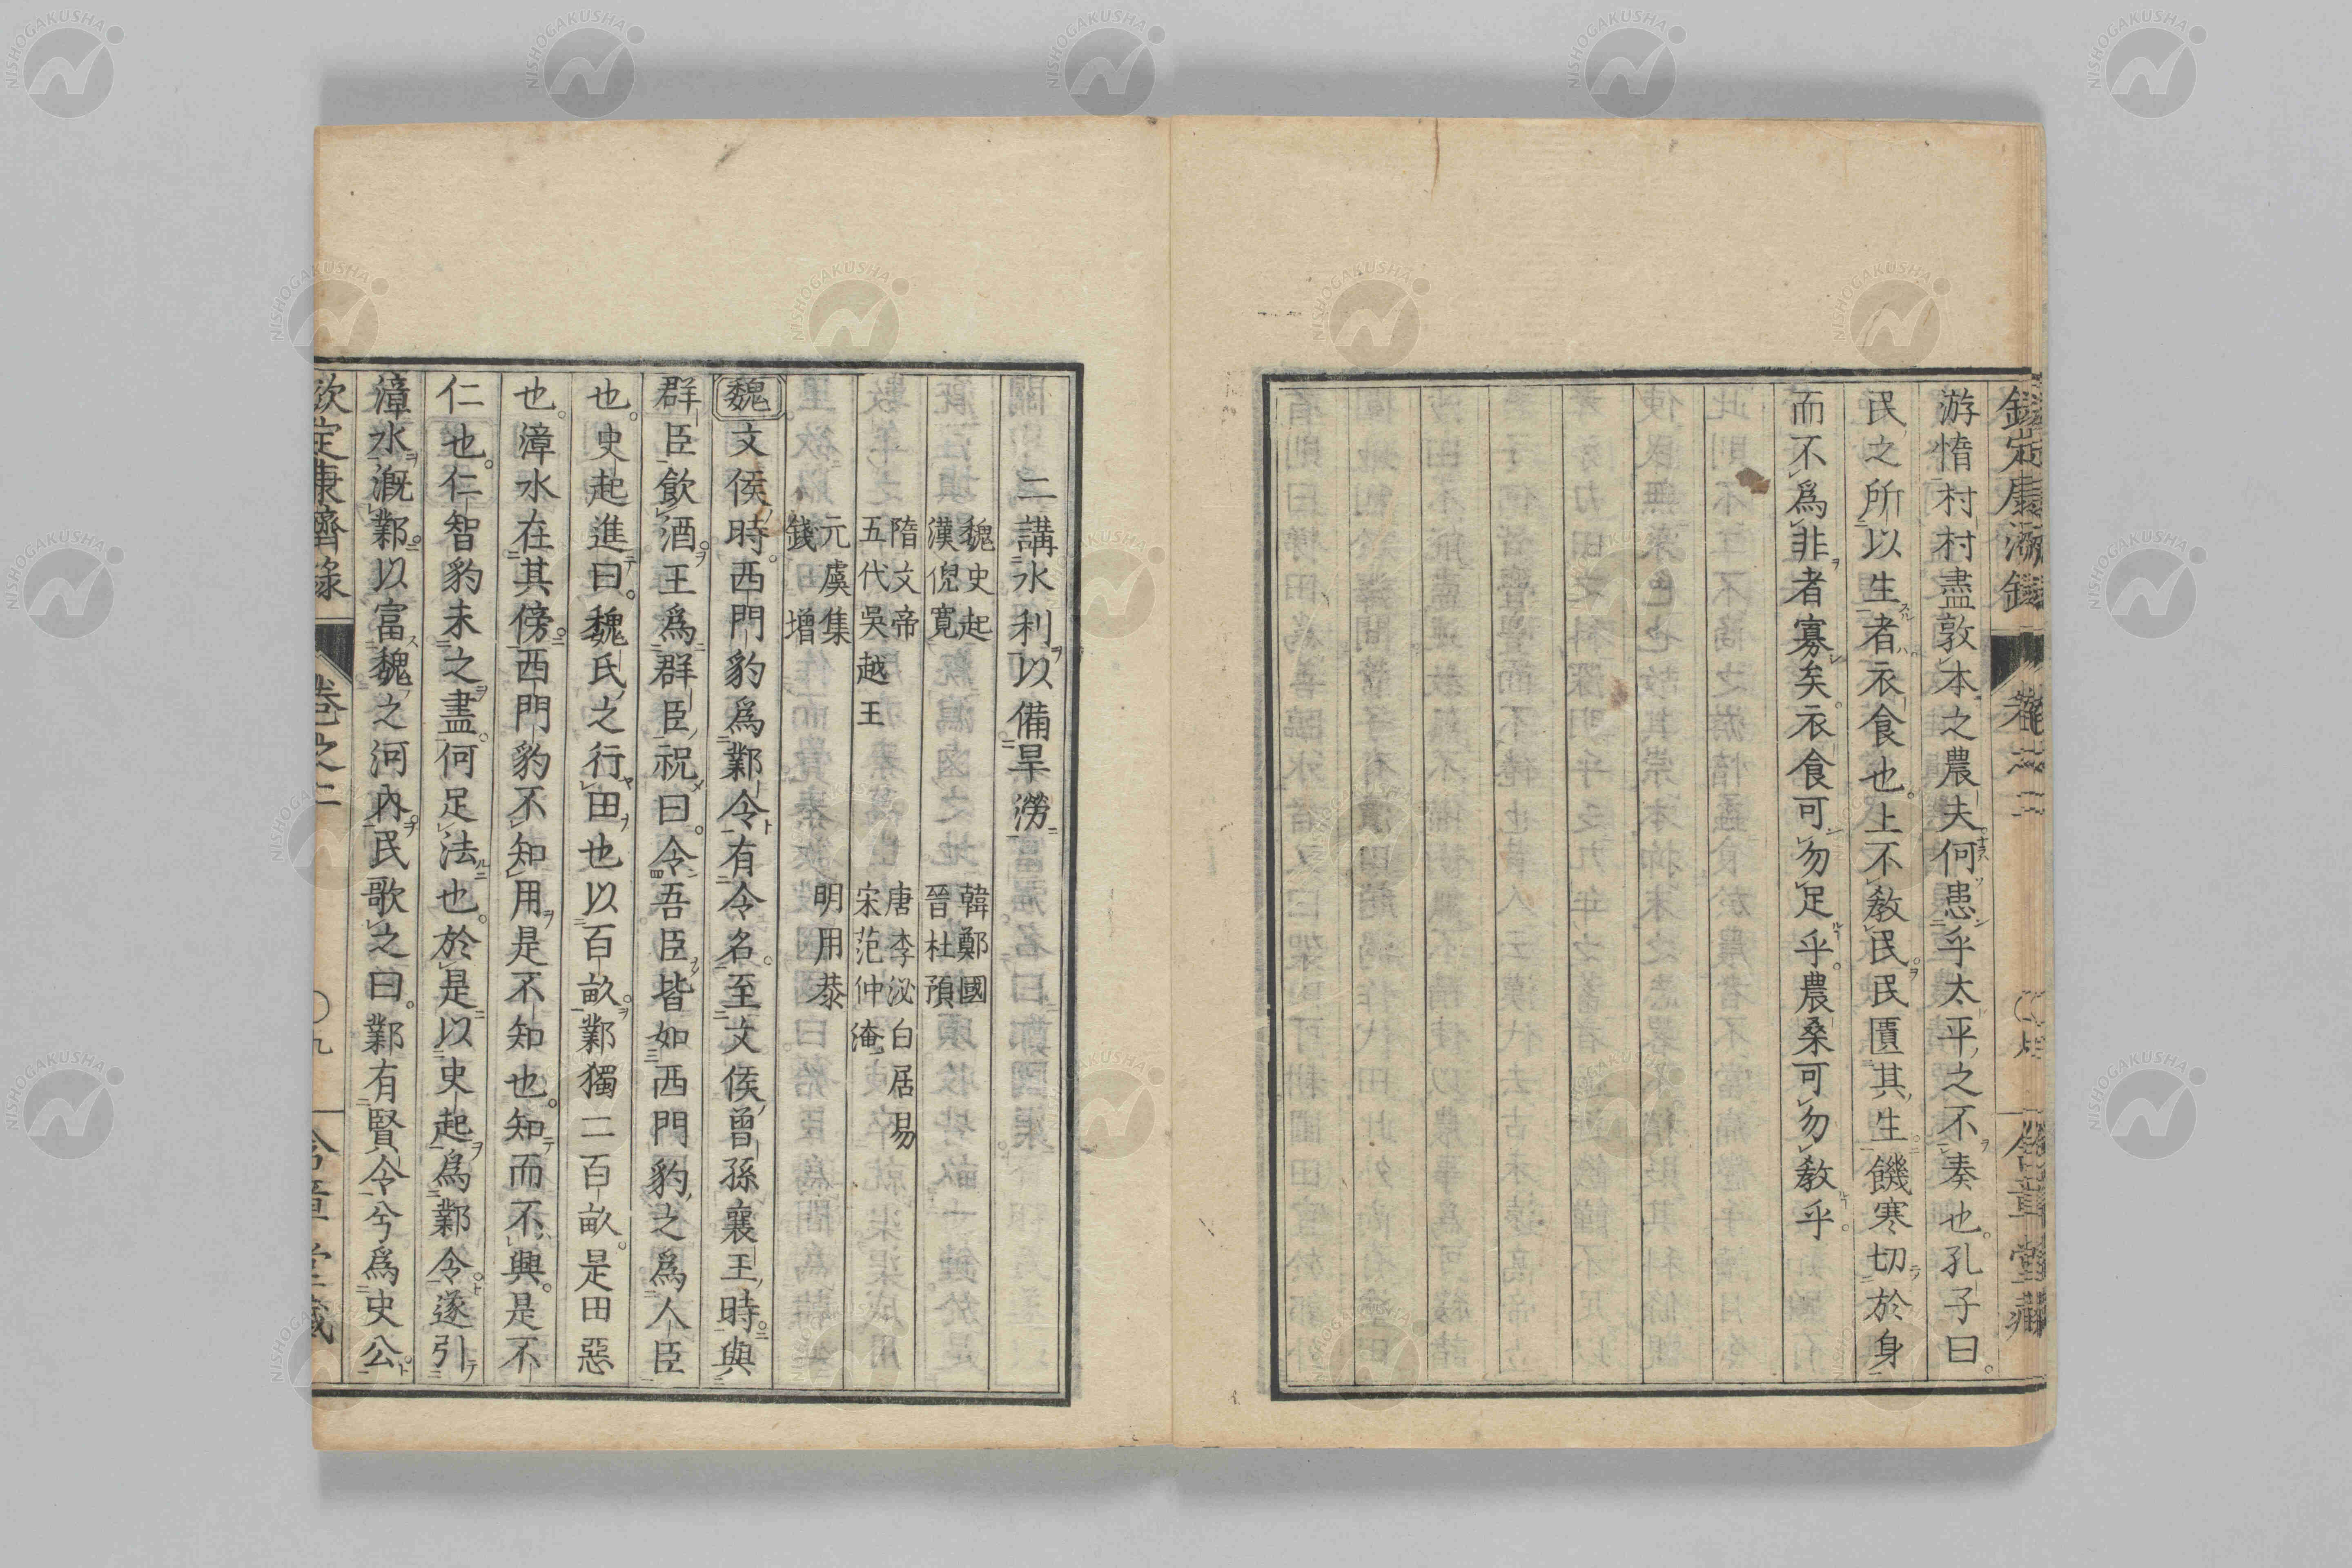 游惰村村盡敦本之農夫何患乎太平之不奏也孔子曰
民之所以生者衣食也上不教民民匱其生饑寒切於身
而不為非者寡矣衣食可勿足乎農桑可勿教乎
二講水利以備旱澇
魏史起 韓鄭國
漢倪寬 晉杜預
隋文帝 唐李泌白居易
五代吳越王 宋范仲淹
元虞集 明用棻
錢增
魏文侯時西門豹為鄴令有令名至文侯曾孫襄王時與
群臣飲酒王為群臣祝曰令吾臣皆如西門豹之為人臣
也史起進曰魏氏之行田也以百畝鄴獨二百畝是田惡
也漳水在其傍西門豹不知用是不知也知而不興是不
仁也仁智豹未之盡何足法也於是以史起為鄴令遂引
漳水溉鄴以富魏之河內民歌之曰鄴有賢令兮為史公
欽定康濟錄 卷之二 〇九
NISHOGAKUSHA